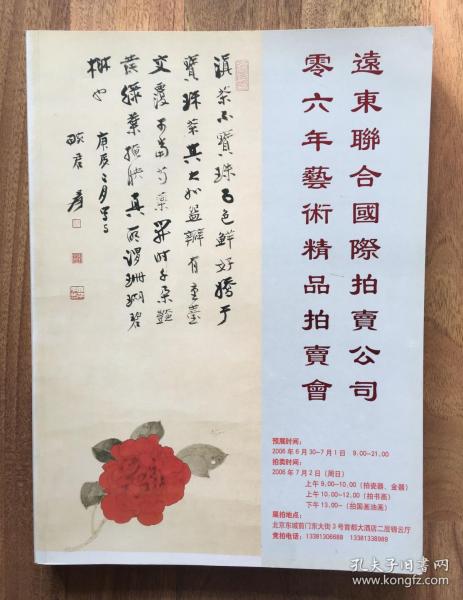 遠東聯合國際拍賣公司
零六年藝術精品拍賣會
滇茶不寶珠 色鮮好矯于
寶珠茶其大如盌瓣有重臺
文覆可當芍藥 時千朵豔
叢綠葉 真所謂珊瑚碧
樹也
庚辰二月
君
爰
预展时间：
2006 年 6 月 30-7 月 1 日 9.00-21.00
拍卖时间：
2006 年 7 月 2 日（周日）
上午 9.00-10.00（拍瓷器、金器）
上午 10.00-12.00（拍书画）
下午 13.00-（拍国画油画）
展拍地点：
北京东城前门东大街 3 号首都大酒店二层锦云厅
竞拍电话：13381306688 13381338989
孔夫子旧书网
www.kongfz.com